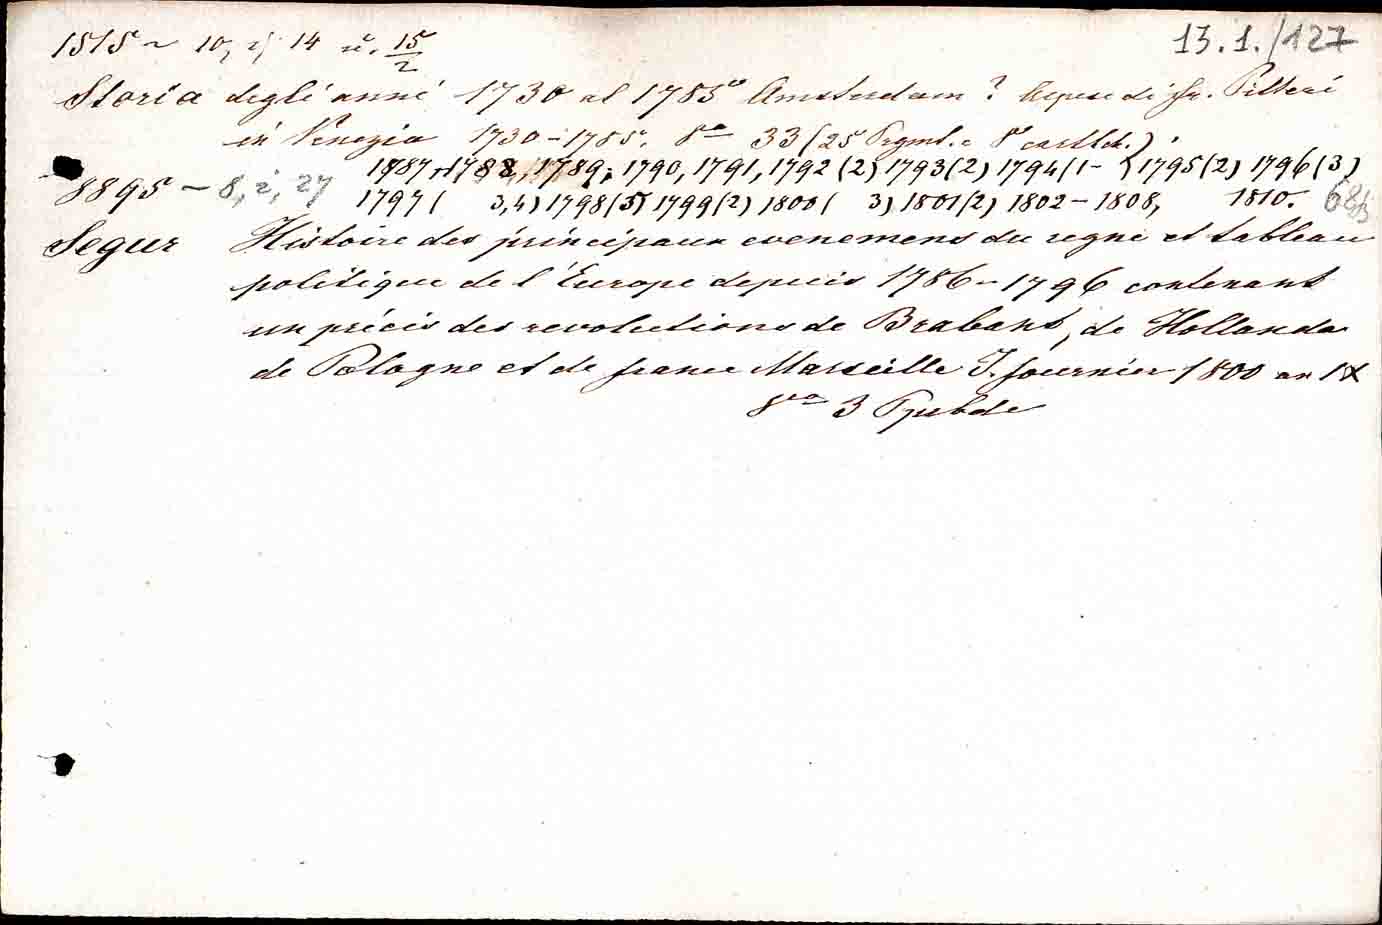 1515 ~ 10, i, 14 u. 15/2
13.1./127
Storia degli anni 1730 al 1785 Amsterdam ? a spese di Fr. Pitteri
in Venezia 1730–1785. 8vo 33 (25 Prgmt. 8 cartlda.).
1787, 1788, 1789, 1790, 1791, 1792 (2) 1793 (2) 1794 (1- ) 1795 (2) 1796 (3)
8895 – 8, i, 27 1797 ( 3,4) 1798 (3) 1799 (2) 1800 ( 3) 1801 (2) 1802 – 1808, 1810.
Segur Histoire des principaux evenemens du regne et tableau
politique de l'Europe depuis 1786–1796 contenant
un précis des revolutions de Brabant, de Hollande
de Pologne et de france Marseille J. fournier 1800 an IX
8vo 3